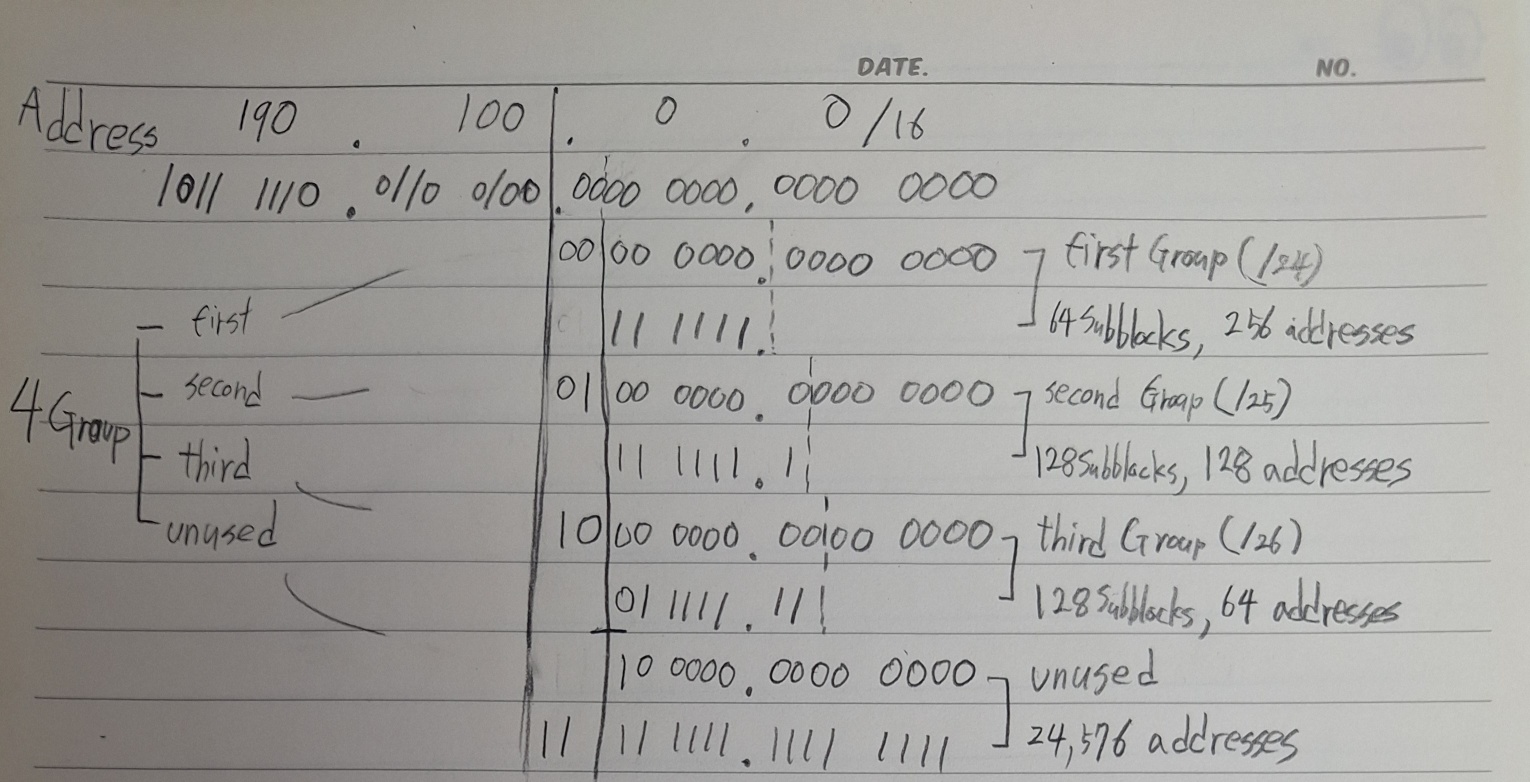 DATE. NO.
Address 190 . 100 . 0 . 0 /16
1011 1110 . 0110 0100 . 0000 0000 . 0000 0000
00 00 0000 . 0000 0000 first Group (/24)
first 11 1111 . 64 Subblocks, 256 addresses
second 01 00 0000 . 0000 0000 second Group (/25)
4 Group
third 11 1111 . 1 128 Subblocks, 128 addresses
unused 10 00 0000 . 0000 0000 third Group (/26)
01 1111 . 11 128 Subblocks, 64 addresses
10 0000 . 0000 0000 unused
11 11 1111 . 1111 1111 24,576 addresses